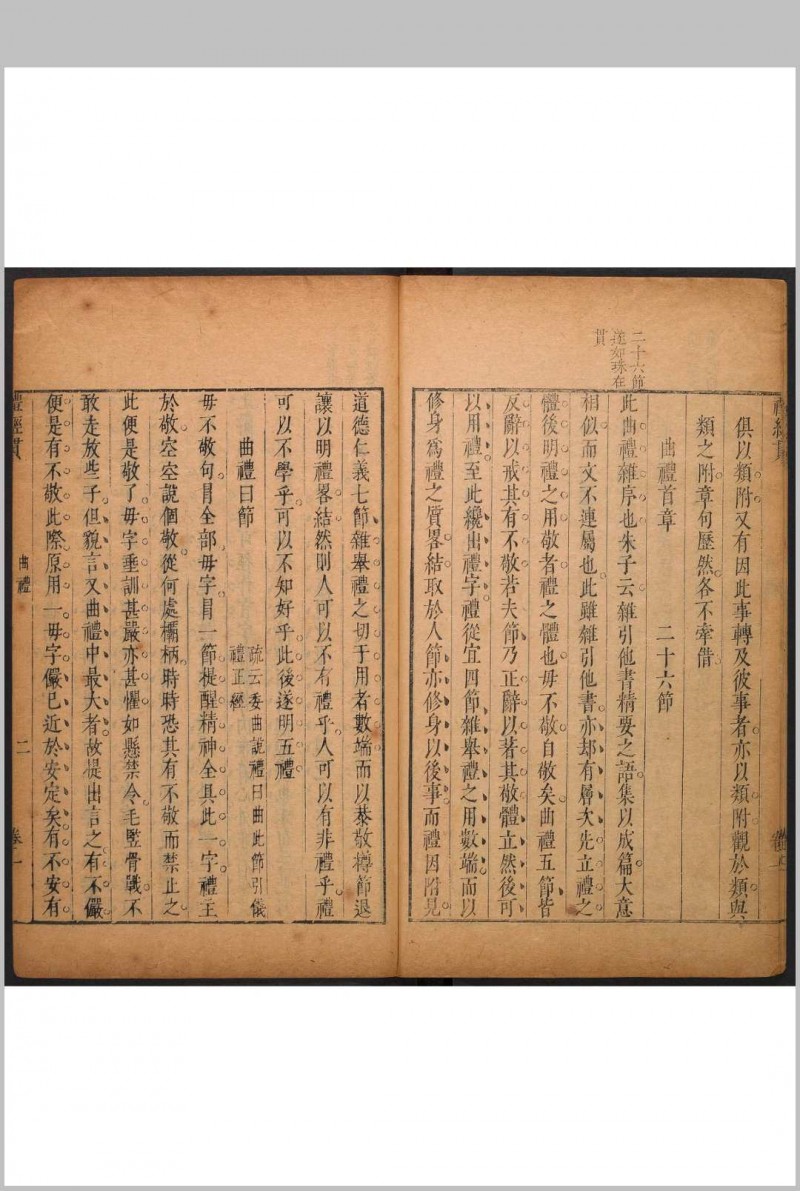 二十六節
遂如珠在
貫
俱以類附又有因此事轉及彼事者亦以類附觀於類與
類之附章句歷然各不牽借
曲禮首章 二十六節
此曲禮雜序也朱子云雜引他書精要之語集以成篇大意
相似而文不連屬也此雖雜引他書亦却有層次先立禮之
體後明禮之用敬者禮之體也毋不敬自敬矣曲禮五節皆
反辭以戒其有不敬若夫節乃正辭以著其敬體立然後可
以用禮至此纔出禮字禮從宜四節雜舉禮之用數端而以
修身為禮之質畧結取於人節亦修身以後事而禮因附見
道德仁義七節雜舉禮之切于用者數端而以恭敬撙節退
讓以明禮畧結然則人可以不有禮乎人可以有非禮乎禮
可以不學乎可以不知好乎此後遂明五禮
曲禮曰節 疏云委曲說禮曰曲此節引儀
禮正經
毋不敬句冒全部毋字冒一節提醒精神全具此一字禮主
於敬空空說個敬從何處欛柄時時恐其有不敬而禁止之
此便是敬了毋字垂訓甚嚴亦甚懼如懸禁令毛豎骨戰不
敢走放些子但貌言又曲禮中最大者故提出言之有不儼
便是有不敬此際原用一毋字儼已近於安定矣有不安有
禮經貫 曲禮 二 卷一